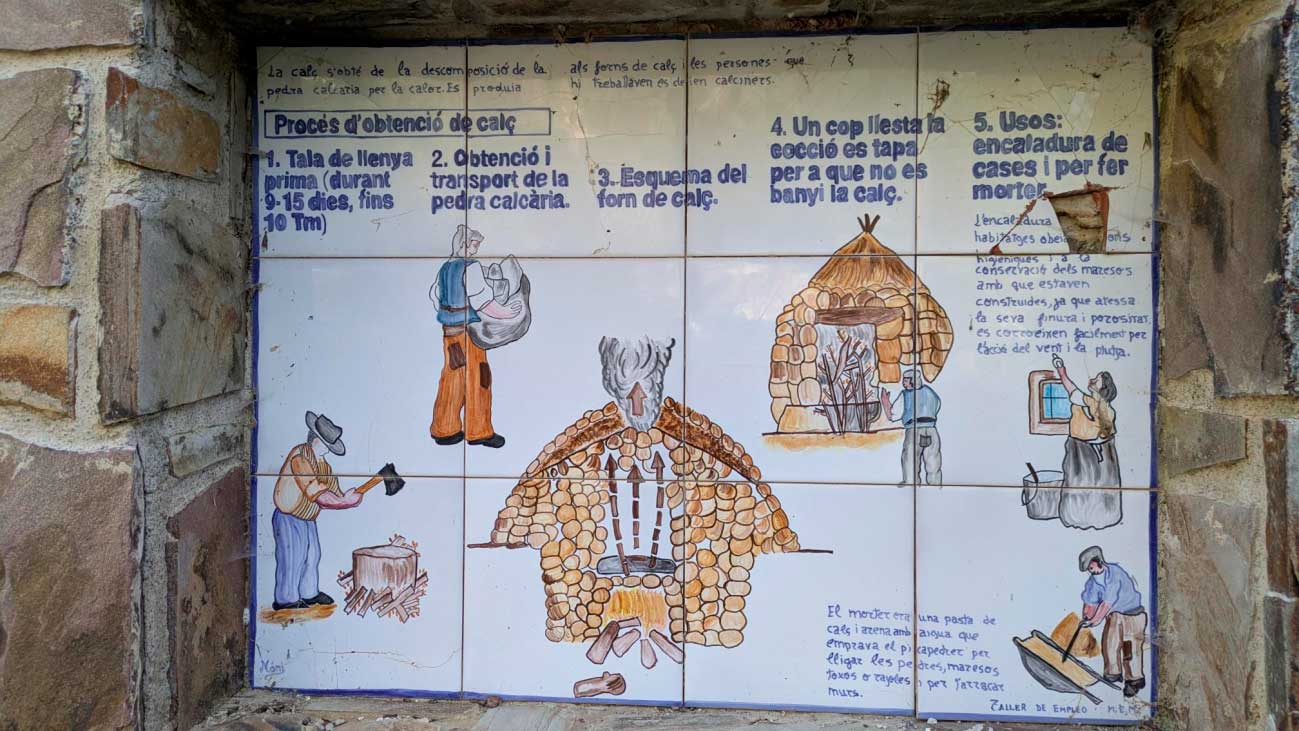 La calç s'obté de la descomposició de la
pedra calcaria per la calor. Es produia
als forns de calç i les persones que
hi treballaven es deien calciners.
Procés d'obtenció de calç
1. Tala de llenya
prima (durant
9-15 dies, fins
10 Tm)
2. Obtenció i
transport de la
pedra calcària.
3. Esquema del
forn de calç.
4. Un cop llesta la
cocció es tapa
per a que no es
banyi la calç.
5. Usos:
encaladura de
cases i per fer
morter
L'encaladura
habitatges
higièniques i a la
conservació dels maresos
amb que estaven
construides, ja que atessa
la seva finura i porositat
es corroeixen facilment per
l'acció del vent i la pluja.
El morter era una pasta de
calç i arena amb aigua que
emprava el picapedrer per
lligar les pedres, maresos
toxos o rajoles i per farracar
murs.
TALLER DE EMPLEO